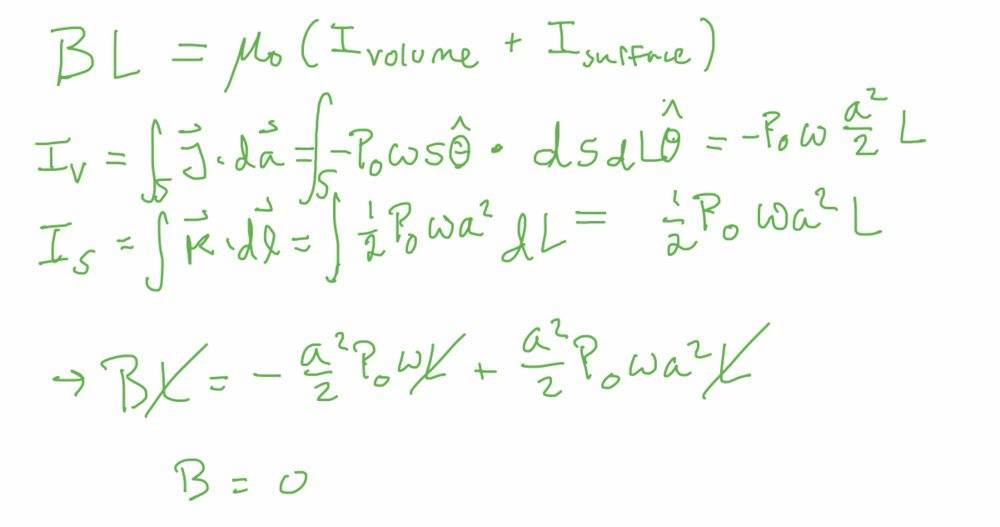 BL = μ₀ (I_volume + I_surface)
I_V = ∫_S J⃗ · da⃗ = ∫_S -P₀ωs θ̂ · ds dL θ̂ = -P₀ω a²/2 L
I_S = ∫ K⃗ · dl⃗ = ∫ 1/2 P₀ωa² dL = 1/2 P₀ ωa² L
→ BL = - a²/2 P₀ωL + a²/2 P₀ωa² L
B = 0